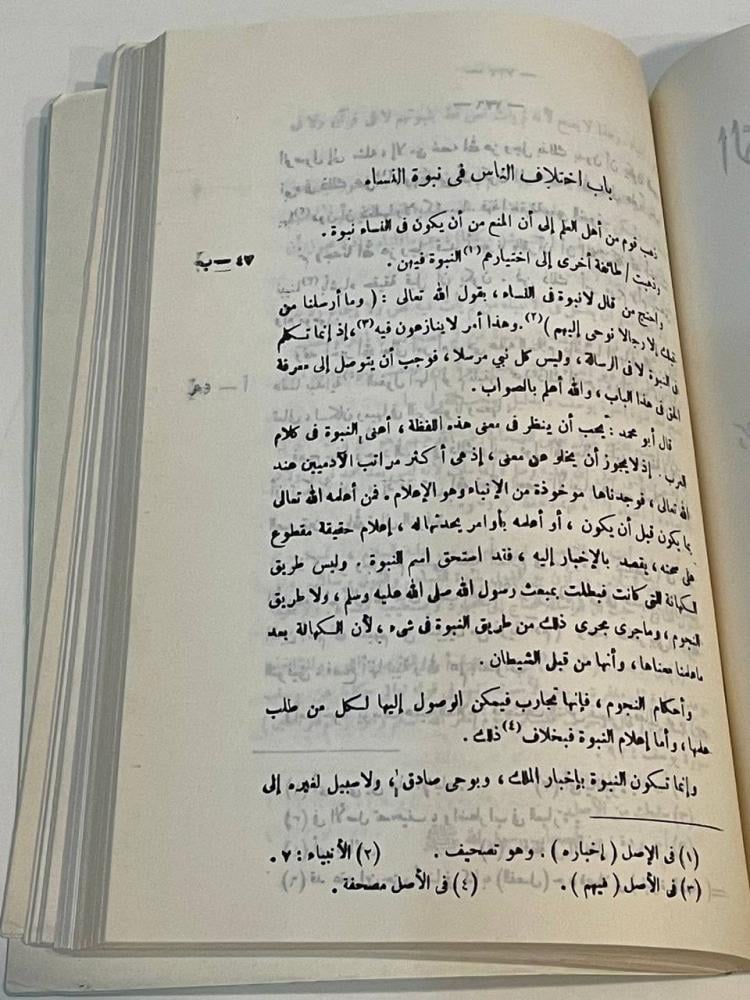 — ٣٣٦ —
باب اختلاف الناس فى نبوة النساء
ذهب قوم من أهل العلم إلى أن المنع من أن يكون فى النساء نبوة .
وذهبت / طائفة أخرى إلى اختيارهم (١) النبوة فيهن .
٧٤ — ب
واحتج من قال لا نبوة فى النساء ، بقول الله تعالى : ( وما أرسلنا من
قبلك إلا رجالا نوحى إليهم ) (٢) . وهذا أمر لا ينازعون فيه (٣) ، إذ إنما تكلم
فى النبوة لا فى الرسالة ، وليس كل نبي مرسلا ، فوجب أن يتوصل إلى معرفة
الحق فى هذا الباب ، والله أعلم بالصواب .
قال أبو محمد : يجب أن ينظر فى معنى هذه اللفظة ، أعنى النبوة فى كلام
العرب . إذ لا يجوز أن يخلو من معنى ، إذ هى أكثر مراتب الآدميين عند
الله تعالى ، فوجدناها موخوذة من الإنباء وهو الإعلام . فمن أعلمه الله تعالى
بما يكون قبل أن يكون ، أو أعلمه بأوامر يحدثها له ، إعلام حقيقة مقطوع
على صحته ، يقصد بالإخبار إليه ، فقد استحق اسم النبوة . وليس طريق
الكهانة التى كانت فبطلت بمبعث رسول الله صلى الله عليه وسلم ، ولا طريق
النجوم ، وما جرى مجرى ذلك من طريق النبوة فى شىء ، لأن الكهالة بعد
ما علمنا معناها ، وأنها من قبل الشيطان .
وأحكام النجوم ، فإنها تجارب فيمكن الوصول إليها لكل من طلب
علمها ، وأما إعلام النبوة فبخلاف (٤) ذلك .
وإنما تكون النبوة بإخبار الملك ، وبوحى صادق ، ولا سبيل لغيره إلى
(١) فى الإصل ( إخباره ) . وهو تصحيف . (٢) الأنبياء : ٧ .
(٣) فى الأصل ( فيهم ) . (٤) فى الأصل مصحفة .